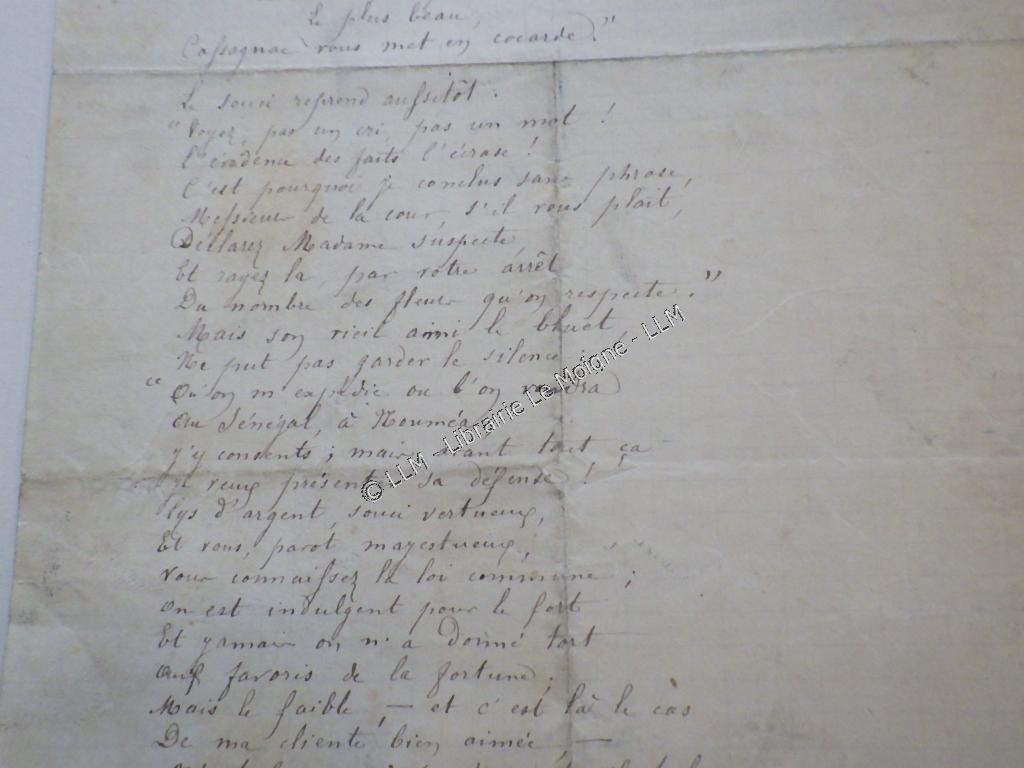 Le plus beau,
Cassagnac vous met en cocarde."
Le souci reprend aussitôt :
"Voyez, pas un cri, pas un mot !
L'évidence des faits l'écrase !
C'est pourquoi je conclus sans phrase,
Messieurs de la cour, s'il vous plait,
Déclarez Madame suspecte,
Et rayez la, par votre arrêt
Du nombre des fleurs qu'on respecte."
Mais son vieil ami le bluet,
Ne put pas garder le silence :
"Qu'on m'expédie où l'on voudra
Au Sénégal, à Nouméa,
J'y consents ; mais avant tout ça
Je veux présenter sa défense !
Lys d'argent, souci vertueux,
Et vous, pavot majestueux,
Vous connaissez la loi commune ;
On est indulgent pour le fort
Et jamais on n'a donné tort
Aux favoris de la fortune ;
Mais le faible, — et c'est là le cas
De ma cliente bien aimée —
© LLM - Librairie Le Moigne - LLM